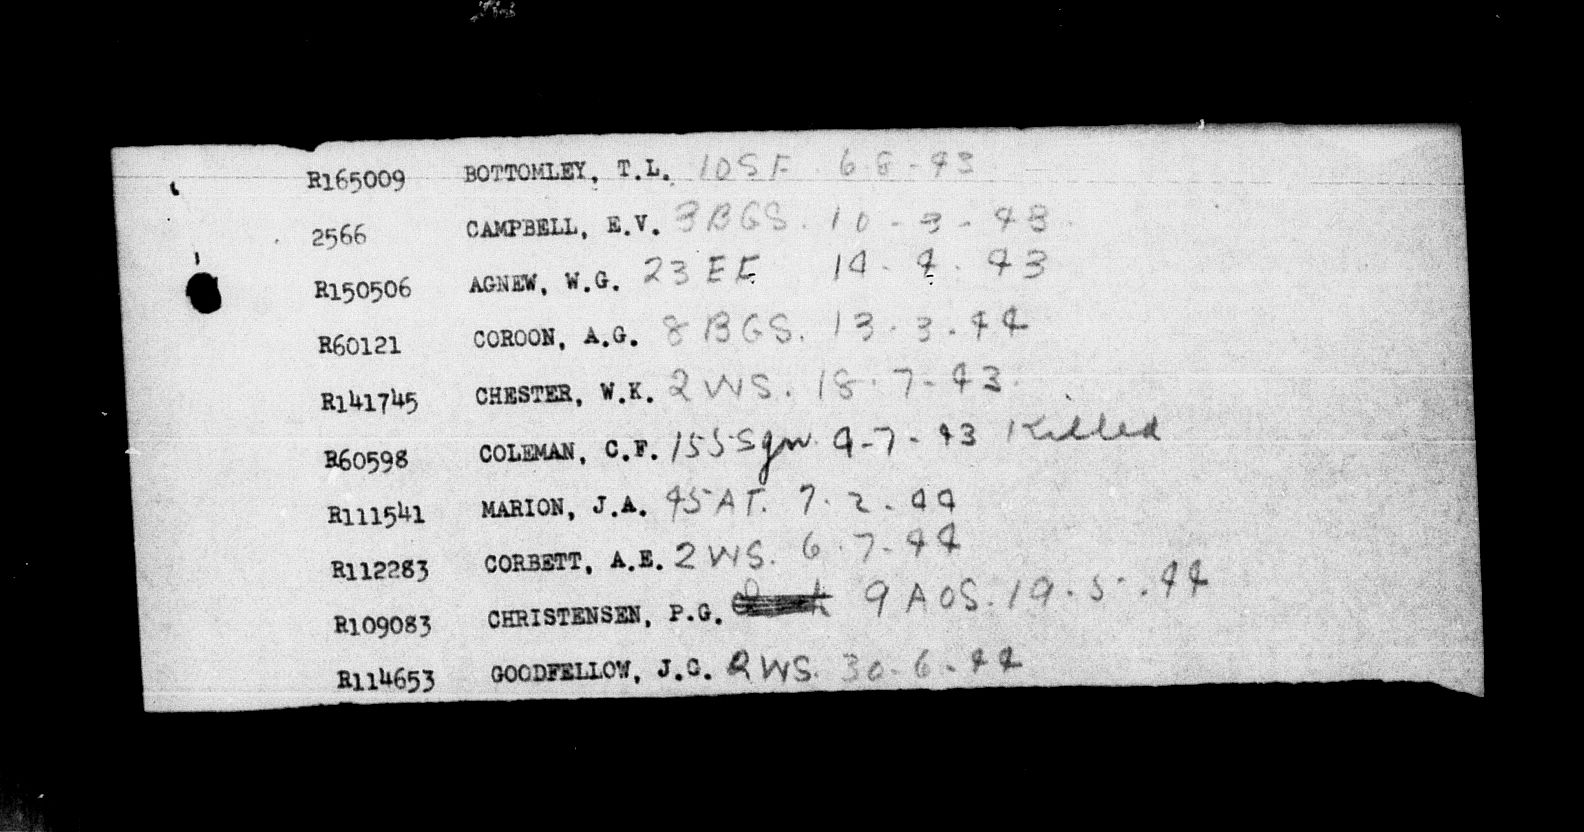 R165009 BOTTOMLEY, T.L. 10SF 6-8-43
2566 CAMPBELL, E.V. 3BGS. 10-3-43
R150506 AGNEW, W.G. 23 EF 14-4-43
R60121 COROON, A.G. 8 BGS. 13-3-44
R141745 CHESTER, W.K. 2 WS. 18-7-43.
R60598 COLEMAN, C.F. 155 Sqn. 9-7-43 Killed
R111541 MARION, J.A. 45 AT. 7-2-44
R112283 CORBETT, A.E. 2 WS. 6-7-44
R109083 CHRISTENSEN, P.G. 9 AOS. 19-5-44
R114653 GOODFELLOW, J.C. 2 WS. 30-6-44